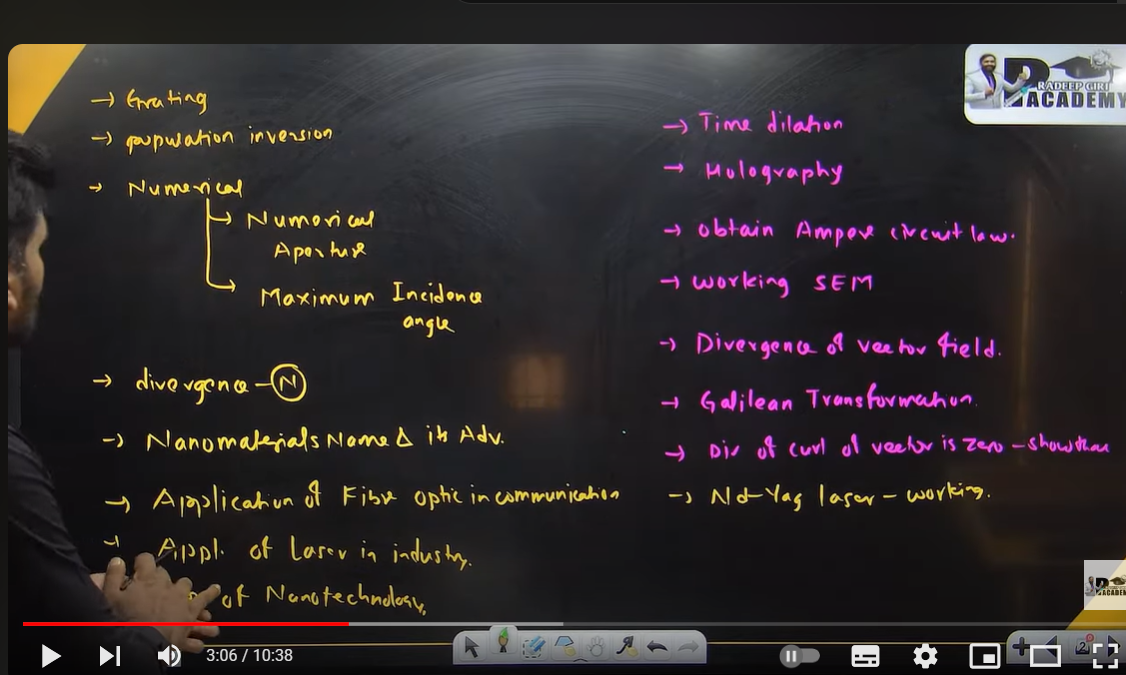 → Grating
→ population inversion
→ Numerical
→ Numerical
Aperture
→ Maximum Incidence
angle
→ divergence - N
→ Nanomaterials Name & its Adv.
→ Application of Fibre optic in communication
→ Appl. of Laser in industry.
of Nanotechnology,
→ Time dilation
→ Holography
→ obtain Ampere circuit law.
→ working SEM
→ Divergence of vector field.
→ Galilean Transformation.
→ Div of curl of vector is zero - show that
→ Nd-Yag laser - working.
PRADEEP GIRI
ACADEMY
ACADEMY
3:06 / 10:38
2